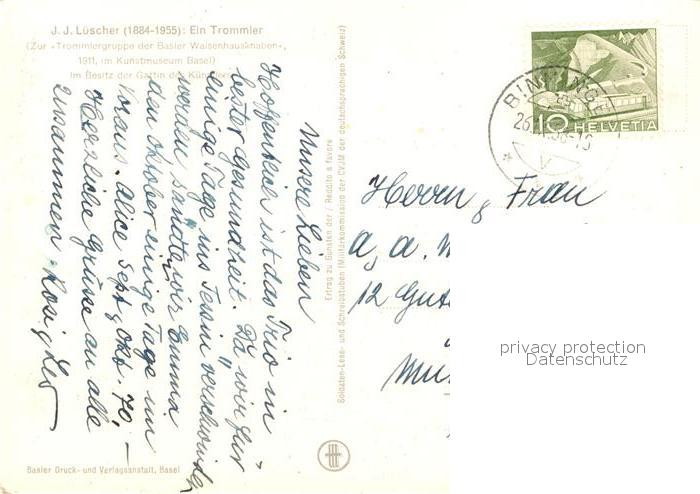 J. J. Lüscher (1884-1955): Ein Trommler
(Zur «Trommlergruppe der Basler Waisenhausknaben»,
1911, im Kunstmuseum Basel)
Im Besitz der Gattin des Künstlers
Unsere Lieben
Hoffentlich ist das Trio in
bester Gesundheit. Da wir für
einige Tage ins Tessin verschwinden
werden, sandte wir Emma
den Oktober einige Tage im
voraus. Alice Sept, Okt. 70.–
Herzliche Grüsse an alle
zusammen. Rosi & Leo
Ertrag zu Gunsten der / Reddito a favore
Soldaten-Lese- und Schreibstuben (Militärkommission der CVJM der deutschsprachigen Schweiz)
Basler Druck- und Verlagsanstalt, Basel
10 HELVETIA
BINNINGEN
26.
Herrn & Frau
a, a.
12
privacy protection
Datenschutz